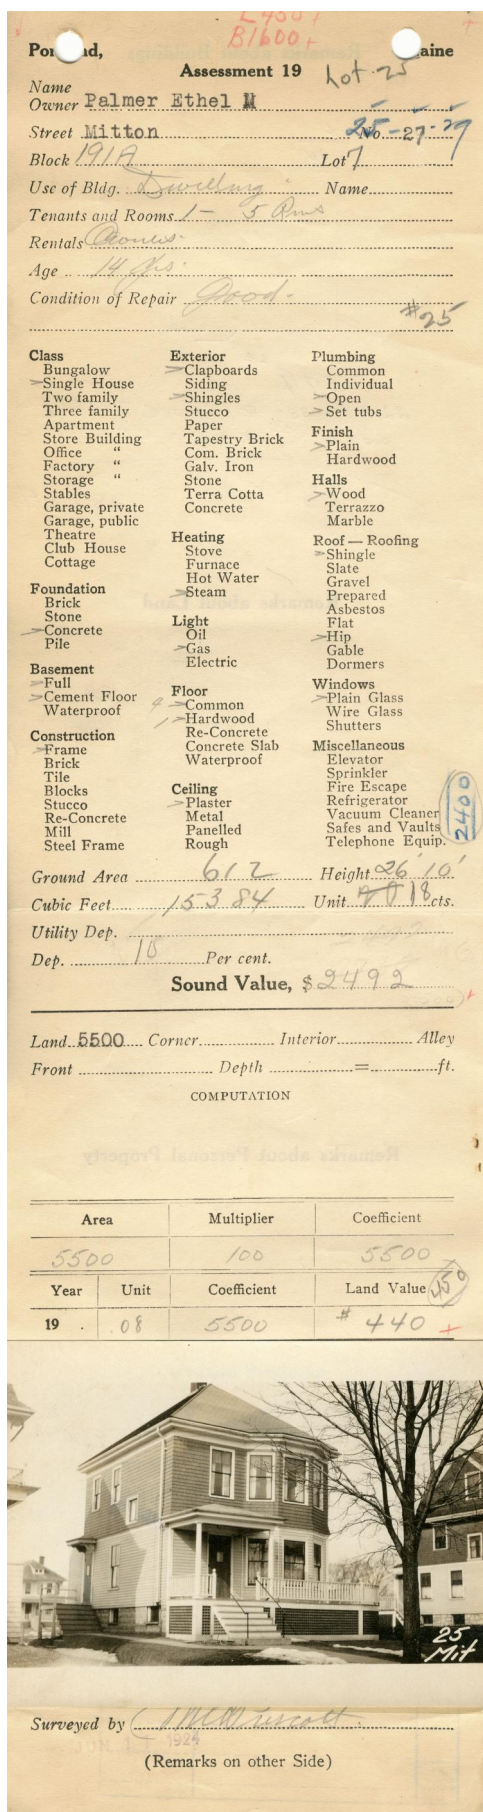 L450+
B1600+
Portland, Maine
Assessment 19 Lot-25
Name
Owner Palmer Ethel M
Street Mitton No. 25-27-29
Block 191A Lot 7
Use of Bldg. Dwelling Name
Tenants and Rooms 1- 5 Rms
Rentals Owners.
Age 14 Yrs.
Condition of Repair Good.
#25
Class
Bungalow
Single House
Two family
Three family
Apartment
Store Building
Office "
Factory "
Storage "
Stables
Garage, private
Garage, public
Theatre
Club House
Cottage
Foundation
Brick
Stone
Concrete
Pile
Basement
Full
Cement Floor
Waterproof
Construction
Frame
Brick
Tile
Blocks
Stucco
Re-Concrete
Mill
Steel Frame
Exterior
Clapboards
Siding
Shingles
Stucco
Paper
Tapestry Brick
Com. Brick
Galv. Iron
Stone
Terra Cotta
Concrete
Heating
Stove
Furnace
Hot Water
Steam
Light
Oil
Gas
Electric
Floor
4 Common
1 Hardwood
Re-Concrete
Concrete Slab
Waterproof
Ceiling
Plaster
Metal
Panelled
Rough
Plumbing
Common
Individual
Open
Set tubs
Finish
Plain
Hardwood
Halls
Wood
Terrazzo
Marble
Roof — Roofing
Shingle
Slate
Gravel
Prepared
Asbestos
Flat
Hip
Gable
Dormers
Windows
Plain Glass
Wire Glass
Shutters
Miscellaneous
Elevator
Sprinkler
Fire Escape
Refrigerator
Vacuum Cleaner
Safes and Vaults
Telephone Equip.
2400
Ground Area 612 Height 26' 10'
Cubic Feet 15384 Unit 18 cts.
Utility Dep.
Dep. 10 Per cent.
Sound Value, $ 2492
Land 5500 Corner Interior Alley
Front Depth = ft.
COMPUTATION
Area Multiplier Coefficient
5500 100 5500
Year Unit Coefficient Land Value 450
19 . .08 5500 $ 440 +
25
Mit
Surveyed by
1924
(Remarks on other Side)